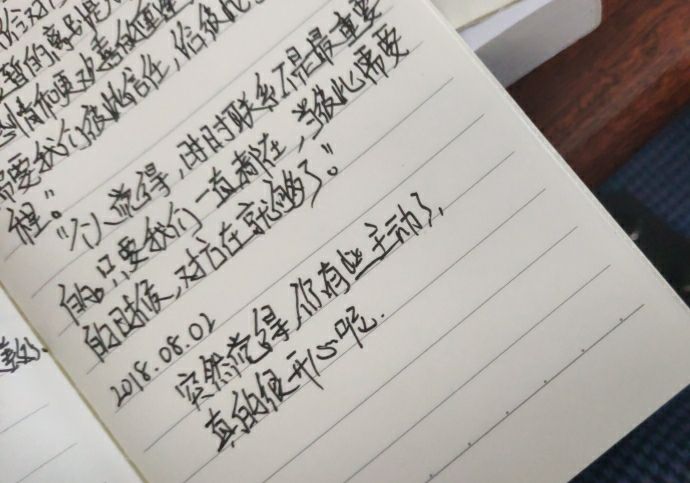 暂的离别是
感情和更欢喜的重逢
需要我们彼此信任，给彼此
程。
"个人觉得，时时联系不是最重要
的。只要我们一直都在，当彼此需要
的时候，对方在就够了。"
2018.08.02
突然觉得，你有些主动了，
真的很开心呢.